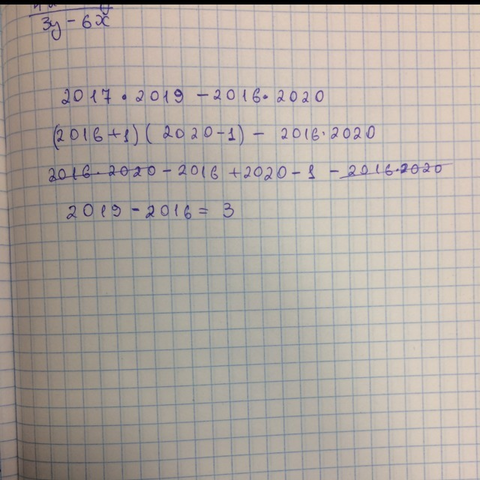 3y - 6x
2017 • 2019 - 2016 • 2020
(2016 + 1) ( 2020 - 1) - 2016 • 2020
2016 • 2020 - 2016 + 2020 - 1 - 2016 • 2020
2019 - 2016 = 3